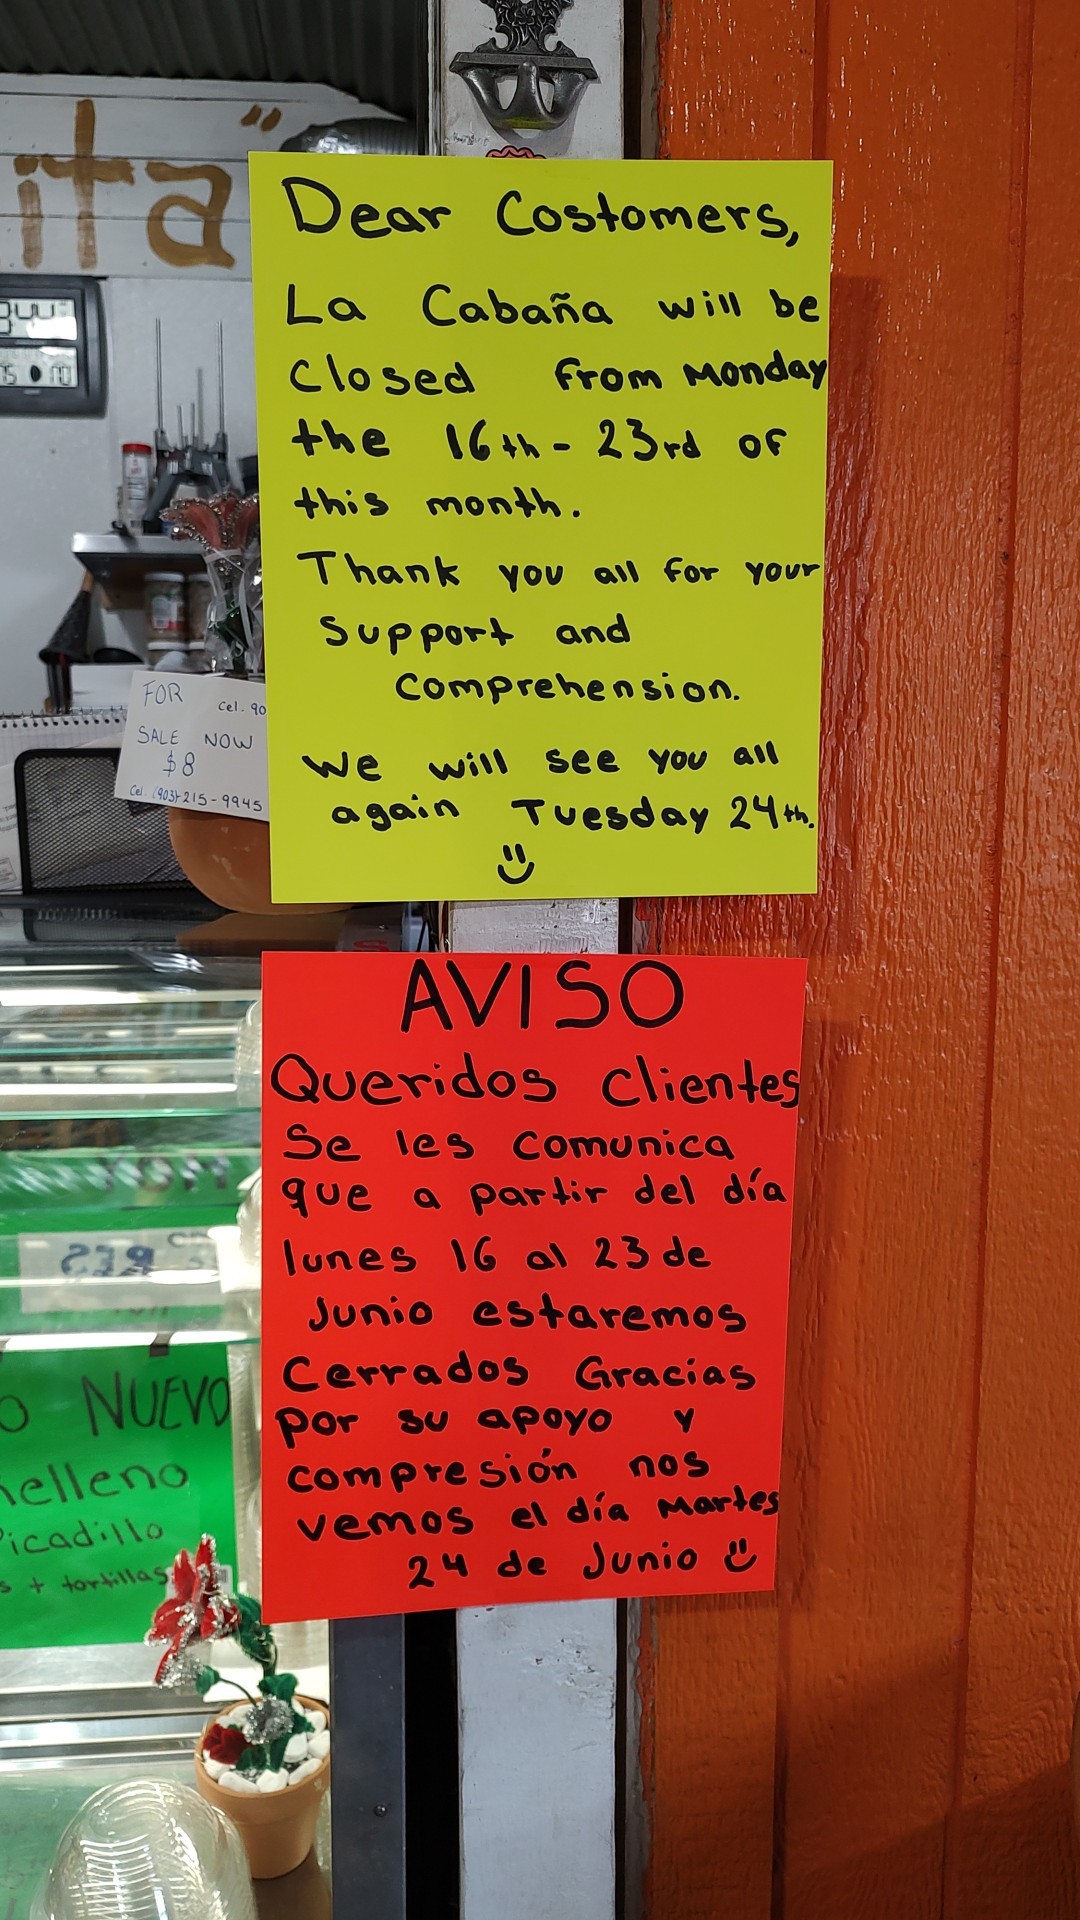 ita"
Dear Costomers,
La Cabaña will be
closed from Monday
the 16th - 23rd of
this month.
Thank you all for your
Support and
comprehension.
We will see you all
again Tuesday 24th.
FOR
Cel. 90
SALE NOW
$8
Cel (903)-215-9945
AVISO
Queridos clientes
Se les comunica
que a partir del día
lunes 16 al 23 de
Junio estaremos
Cerrados Gracias
por su apoyo y
compresión nos
vemos el día Martes
24 de Junio
RES
O NUEVO
elleno
Picadillo
s + tortillas